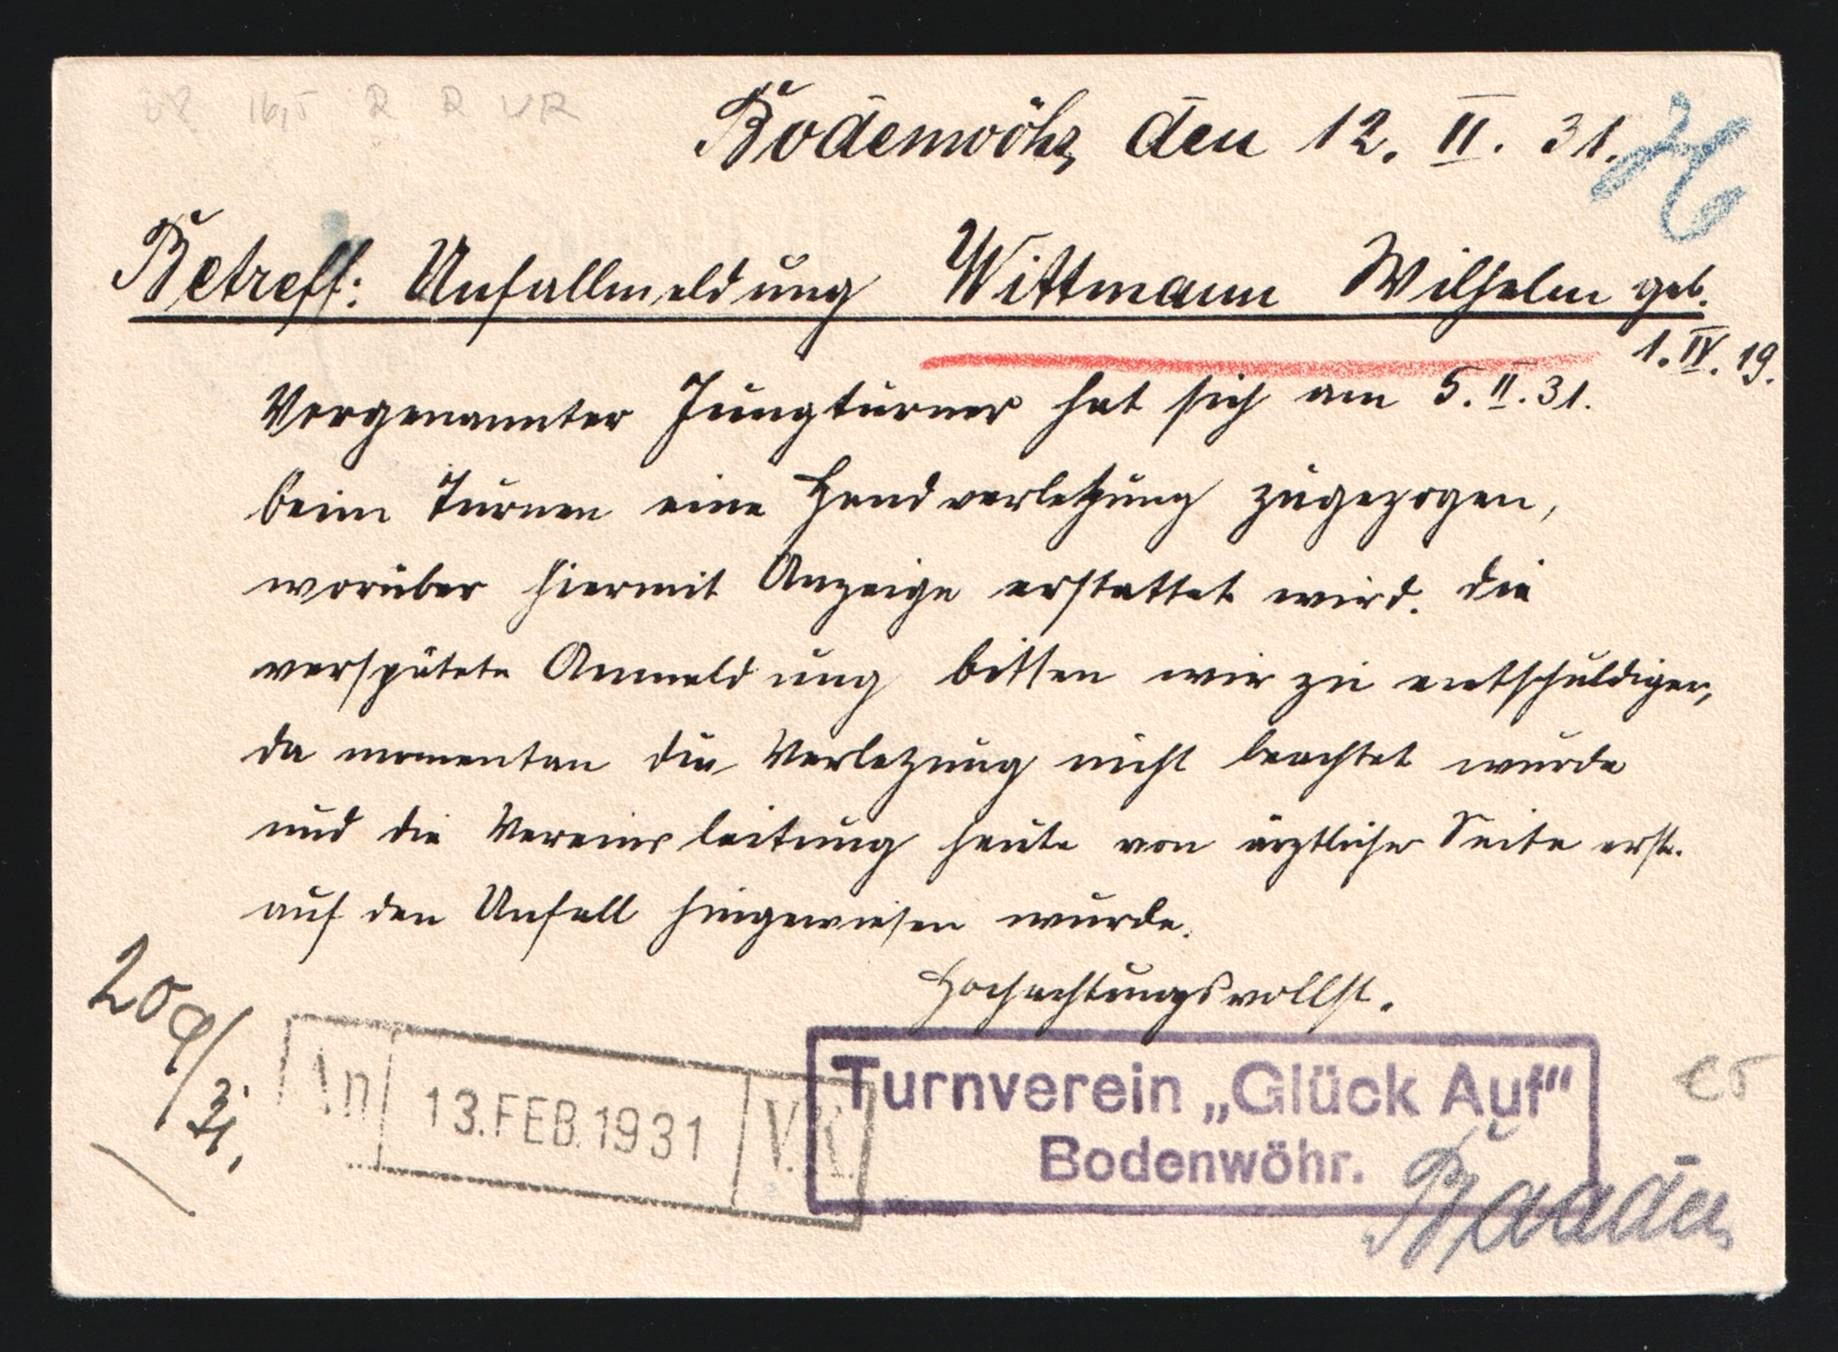 Bodenwöhr, den 12. II. 31.
Betreff: Unfallmeldung Wittmann Wilhelm geb.
1. IV. 19.
Vorgenannter Jungturner hat sich am 5. II. 31.
beim Turnen eine Handverletzung zugezogen,
worüber hiermit Anzeige erstattet wird. Die
verspätete Anmeldung bitten wir zu entschuldigen,
da momentan die Verletzung nicht beachtet wurde
und die Vereinsleitung heute von ärztlicher Seite erst.
auf den Unfall hingewiesen wurde.
Hochachtungsvollst.
An 13. FEB. 1931 V.K.
Turnverein „Glück Auf“
Bodenwöhr.
Baader